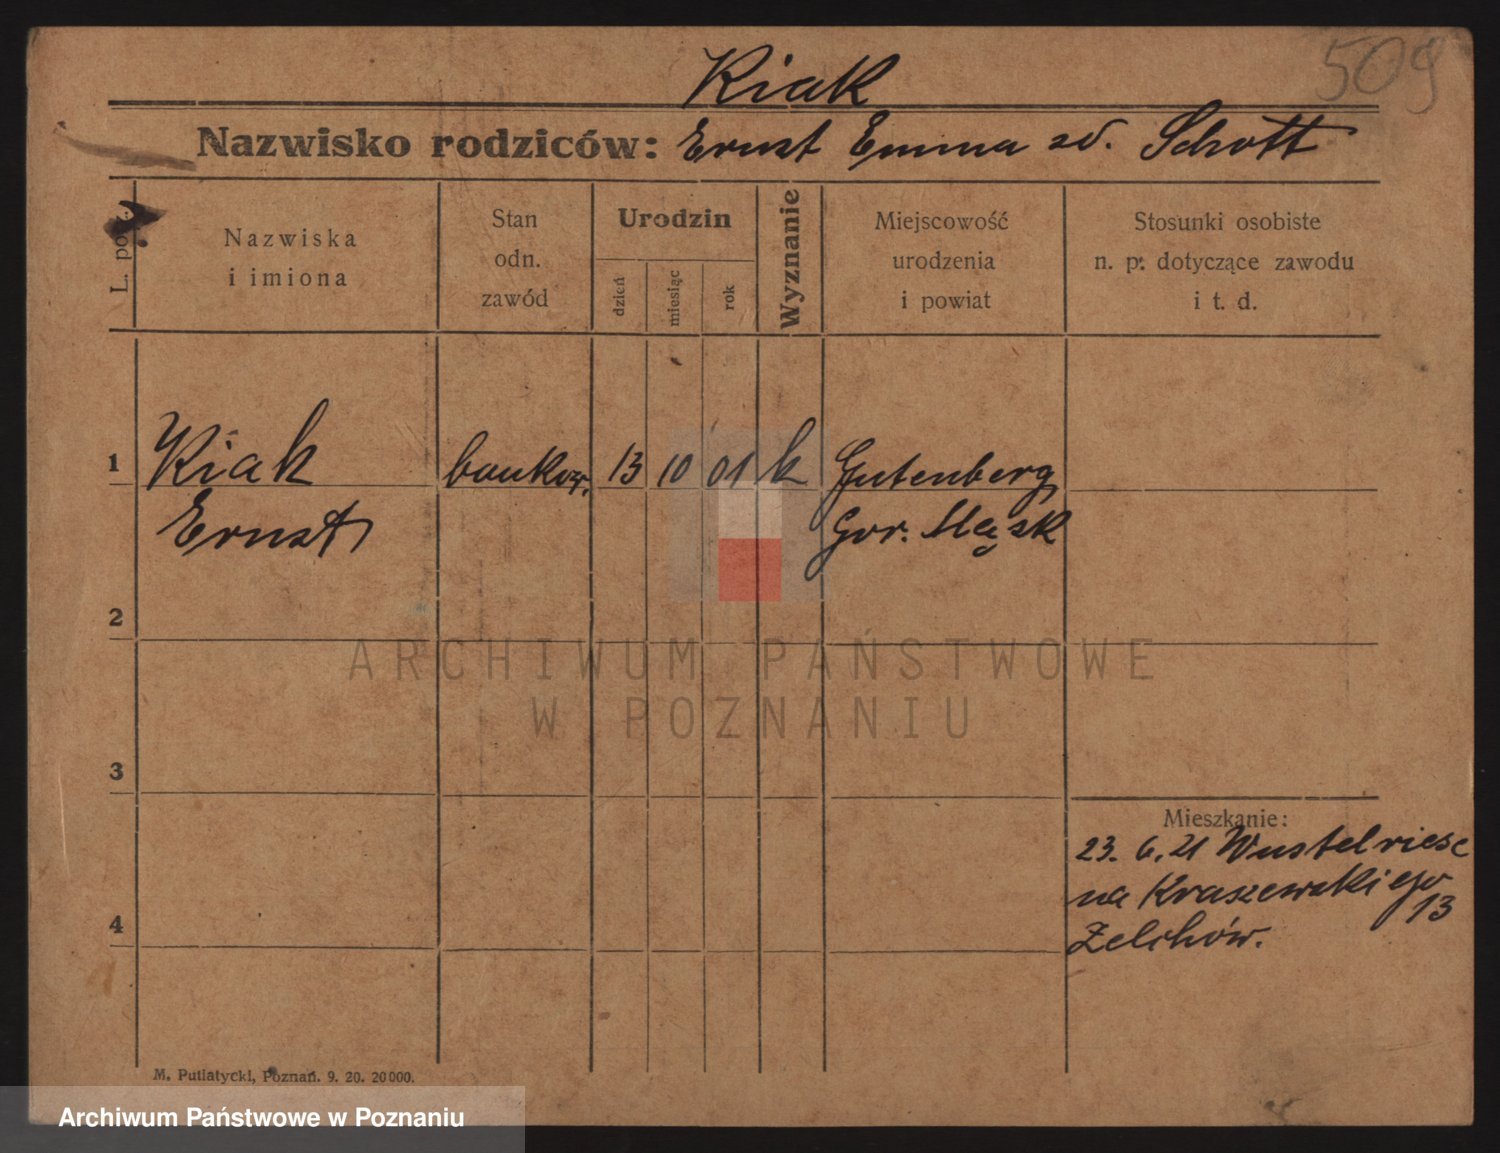 509
Kiak
Nazwisko rodziców: Ernst Emma zd. Schott
L. poz.
Nazwiska
i imiona
Stan
odn.
zawód
Urodzin
dzień
miesiąc
rok
Wyznanie
Miejscowość
urodzenia
i powiat
Stosunki osobiste
n. p. dotyczące zawodu
i t. d.
1 Kiak bankow. 13 10 01 k Gutenberg
Ernst Gór. Śląsk
2
3
4
Mieszkanie:
23. 6. 21
na Kraszewskiego
13
Zelchów.
ARCHIWUM PAŃSTWOWE
W POZNANIU
M. Putiatycki, Poznań. 9. 20. 20000.
Archiwum Państwowe w Poznaniu